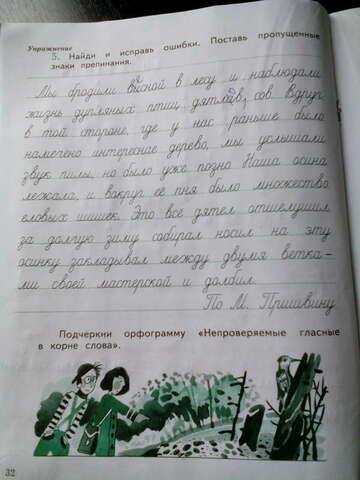 Упражнение
5. Найди и исправь ошибки. Поставь пропущенные
знаки препинания.
Мы бродили весной в лесу и наблюдали
жизнь дупляных птиц дятлов, сов. Вдруг
в той стороне, где у нас раньше было
намечено интересное дерево, мы услышали
звук пилы, но было уже позно. Наша осина
лежала, и вокруг её пня было множество
еловых шишек. Это всё дятел отшелушил
за долгую зиму собирал носил на эту
осинку закладывал между двумя ветка-
ми своей мастерской и долбил.
По М. Пришвину
Подчеркни орфограмму «Непроверяемые гласные
в корне слова».
32